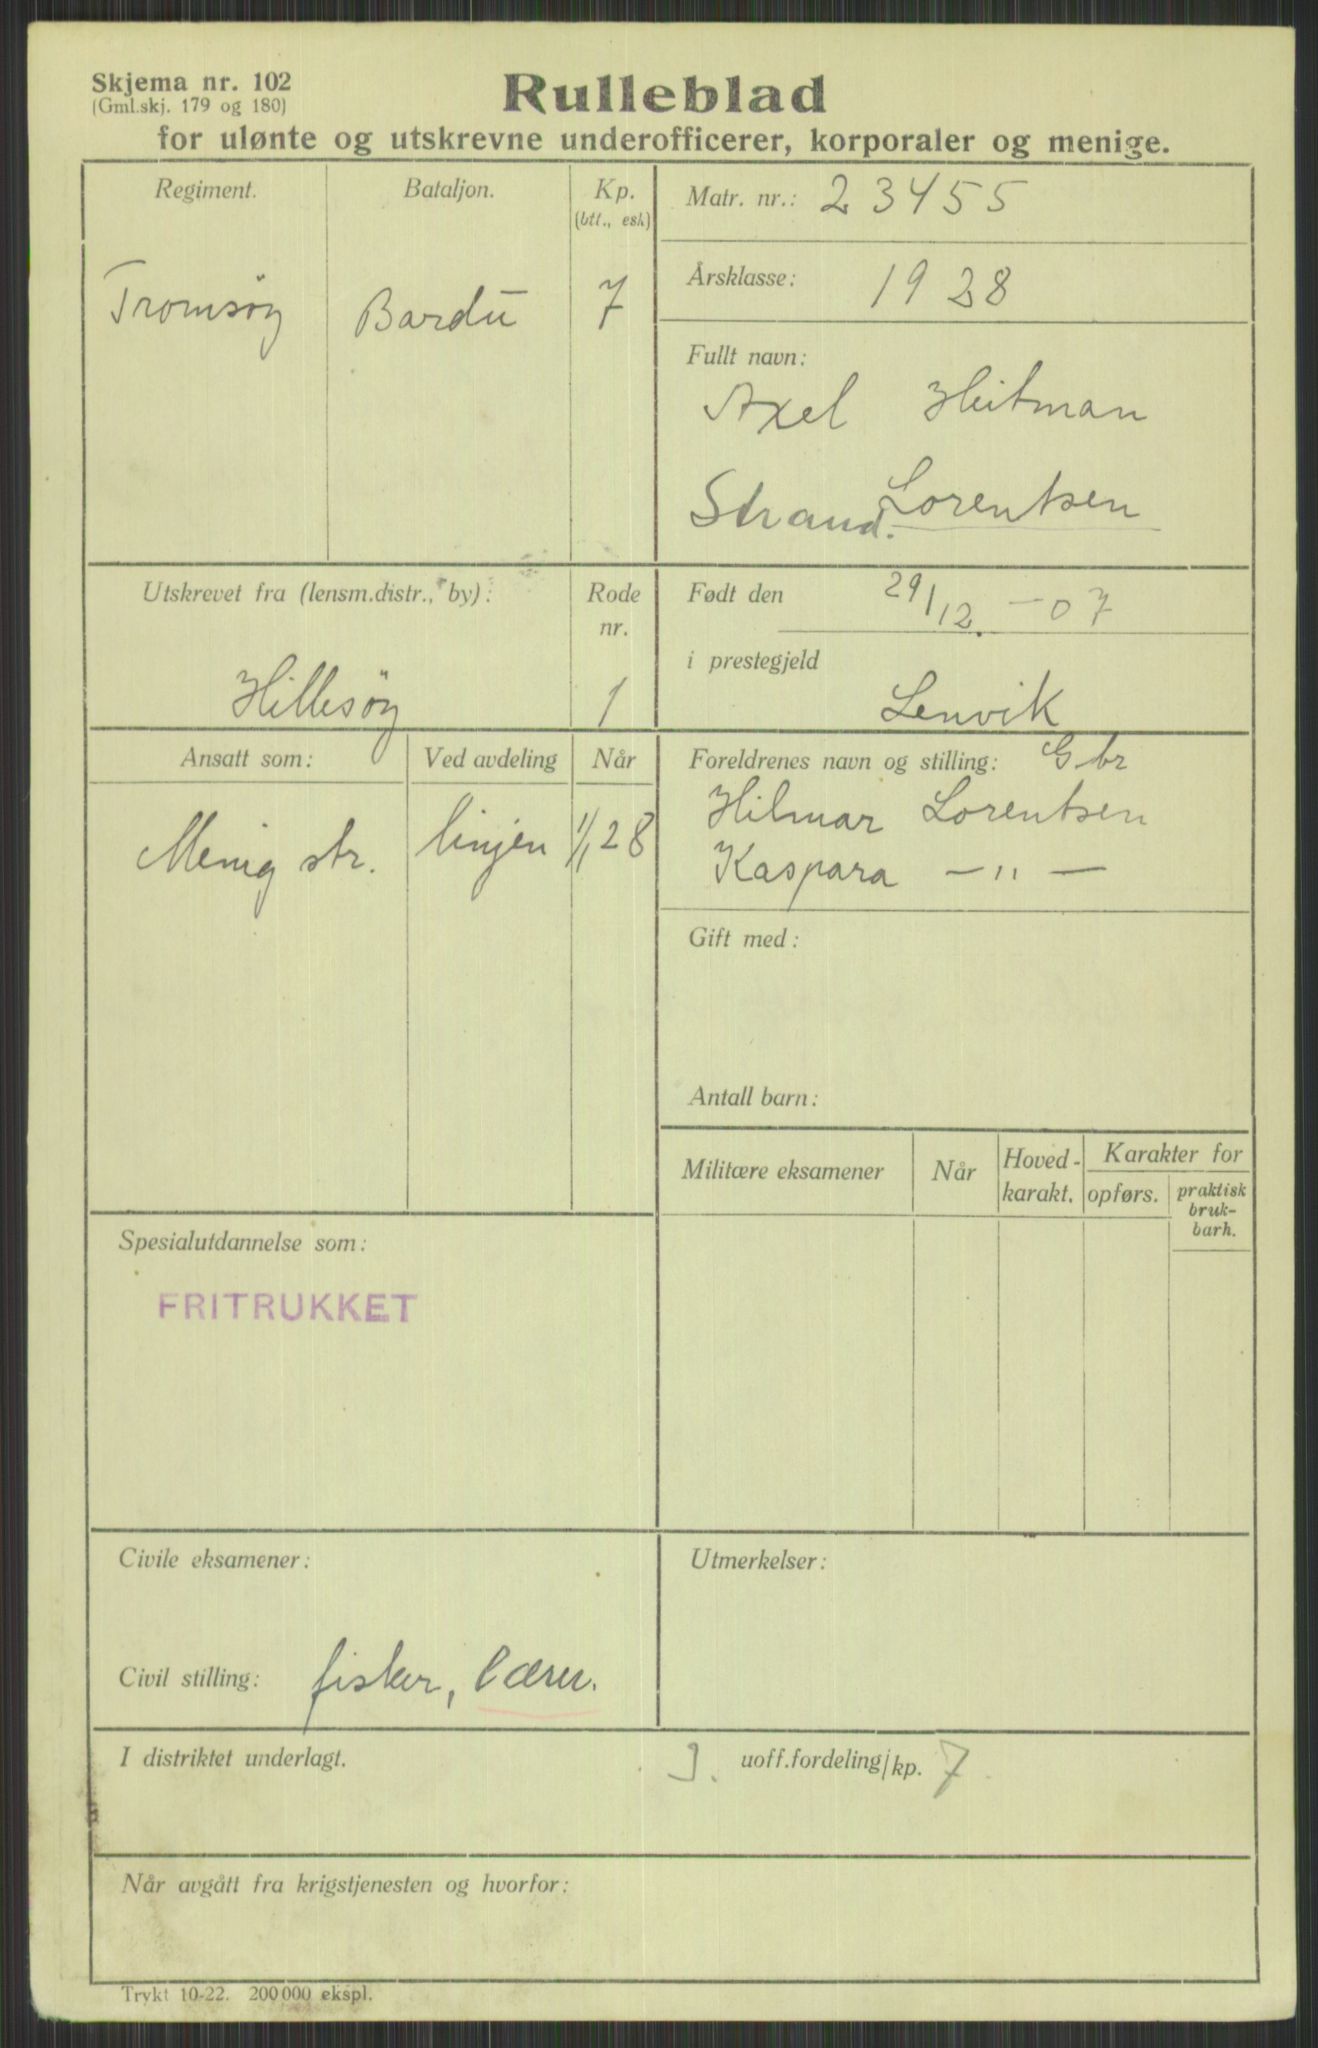 Skjema nr. 102
(Gml.skj. 179 og 180)
Rulleblad
for ulønte og utskrevne underofficerer, korporaler og menige.
Regiment.
Bataljon.
Kp.
(btt., esk)
Tromsöy
Bardu
7
Matr. nr.: 23455
Årsklasse: 1928
Fullt navn:
Axel Heitman
Strand. Lorentsen
Utskrevet fra (lensm.distr., by):
Hillesöy
Rode
nr.
1
Født den 29/12. - 07
i prestegjeld
Lenvik
Ansatt som:
Ved avdeling
Når
Menig str.
linjen
1/1 28
Foreldrenes navn og stilling: Gbr
Hilmar Lorentsen
Kaspara — " —
Gift med:
Antall barn:
Militære eksamener
Når
Hoved-
karakt.
Karakter for
opførs.
praktisk
bruk-
barh.
Spesialutdannelse som:
FRITRUKKET
Civile eksamener:
Civil stilling: fisker,
Utmerkelser:
I distriktet underlagt.
J. uoff.fordeling/kp. 7
Når avgått fra krigstjenesten og hvorfor:
Trykt 10-22. 200 000 ekspl.